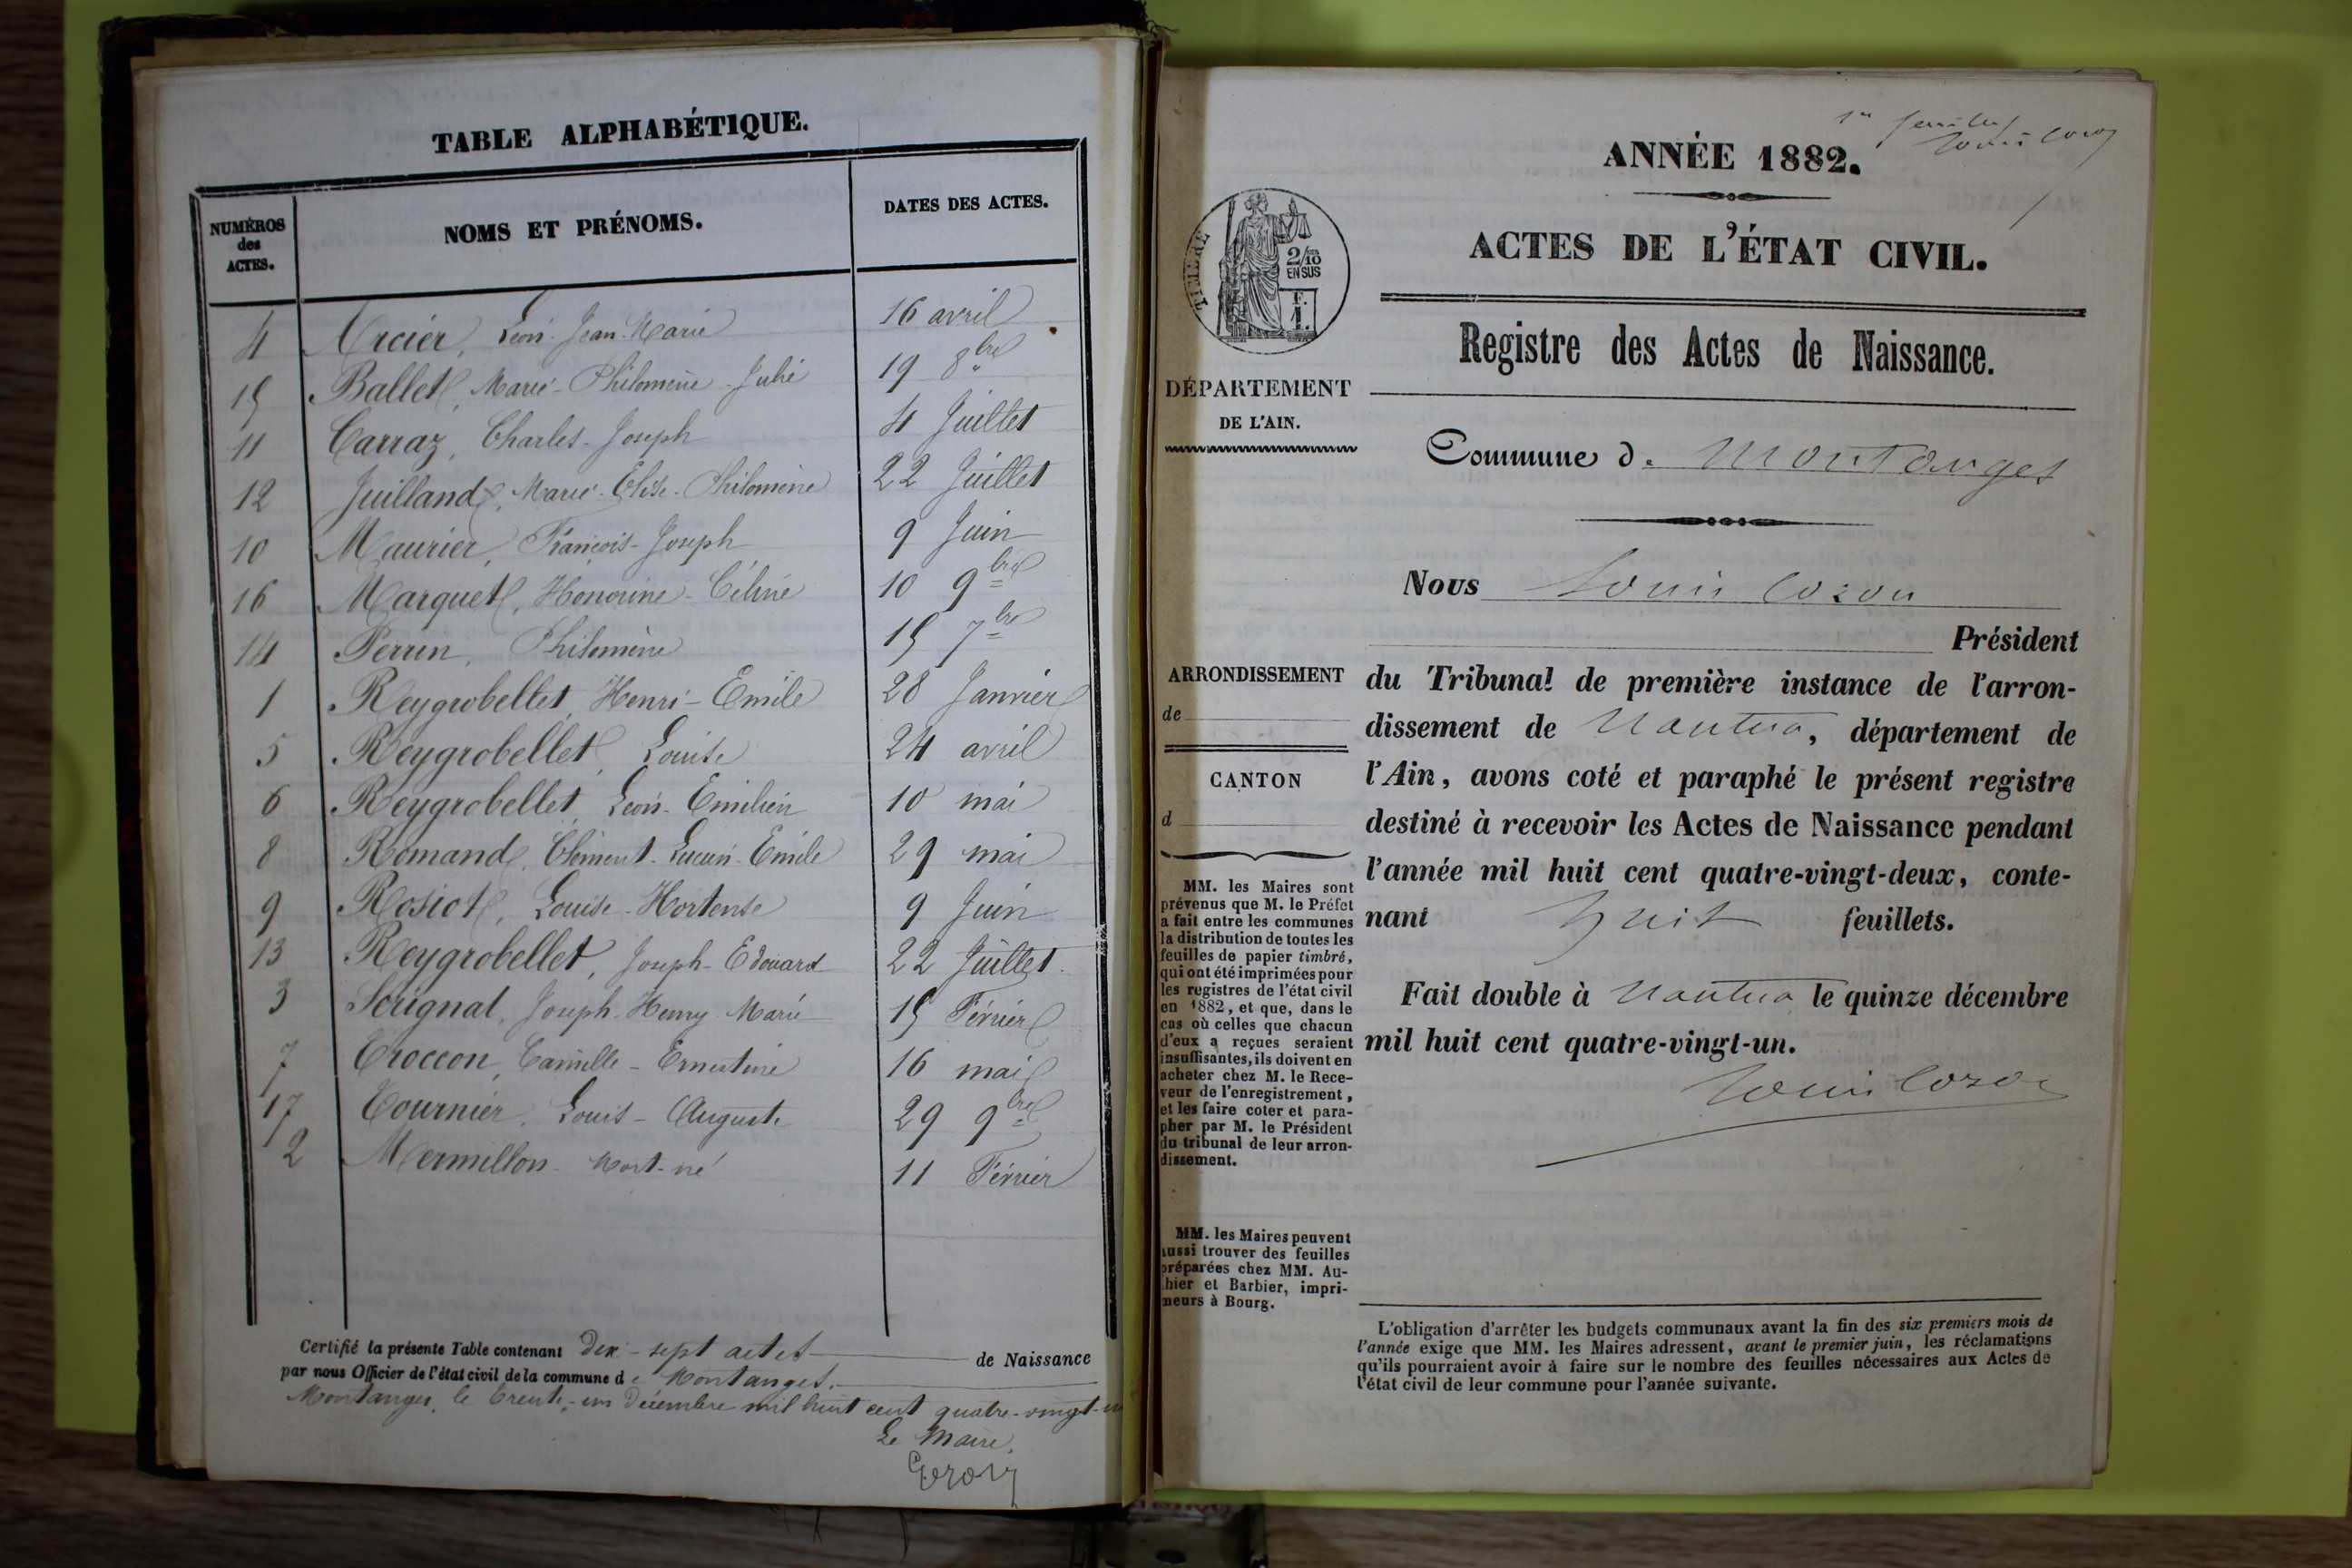 TABLE ALPHABÉTIQUE.
NUMÉROS des ACTES. NOMS ET PRÉNOMS. DATES DES ACTES.
4 Arcier, Léon-Jean-Marie 16 avril
15 Ballet, Marie-Philomène-Julie 19 8bre
11 Carraz, Charles-Joseph 4 Juillet
12 Juilland, Marie-Elise-Philomène 22 Juillet
10 Maurier, François-Joseph 9 Juin
16 Marquet, Honorine-Céline 10 9bre
14 Perrin, Philomène 15 7bre
1 Reygrobellet Henri-Emile 28 Janvier
5 Reygrobellet, Louise 24 avril
6 Reygrobellet, Léon-Emilien 10 mai
8 Romand, Clément-Lucien-Emile 29 mai
9 Rosiot, Louise-Hortense 9 Juin
13 Reygrobellet, Joseph-Edouard 22 Juillet
3 Serignat, Joseph-Henry-Marie 15 Février
7 Troccon, Camille-Ernestine 16 mai
17 Tournier, Louis-Auguste 29 9bre
2 Mermillon Mort-né 11 Février
Certifié la présente Table contenant Dix-sept actes de Naissance
par nous Officier de l'état civil de la commune de Montanges.
Montanges, le trente-un Décembre mil huit cent quatre-vingt-un
Le Maire,
1er feuillet
Louis Cozon
ANNÉE 1882.
ACTES DE L'ÉTAT CIVIL.
2/10 EN SUS
F. 1.
Registre des Actes de Naissance.
DÉPARTEMENT
DE L'AIN.
Commune de Montanges
Nous Louis Cozon
Président
ARRONDISSEMENT
de
CANTON
d
du Tribunal de première instance de l'arron-
dissement de Nantua, département de
l'Ain, avons coté et paraphé le présent registre
destiné à recevoir les Actes de Naissance pendant
l'année mil huit cent quatre-vingt-deux, conte-
nant huit feuillets.
Fait double à Nantua le quinze décembre
mil huit cent quatre-vingt-un.
Louis Cozon
MM. les Maires sont
prévenus que M. le Préfet
a fait entre les communes
la distribution de toutes les
feuilles de papier timbré,
qui ont été imprimées pour
les registres de l'état civil
en 1882, et que, dans le
cas où celles que chacun
d'eux a reçues seraient
insuffisantes, ils doivent en
acheter chez M. le Rece-
veur de l'enregistrement,
et les faire coter et para-
pher par M. le Président
du tribunal de leur arron-
dissement.
MM. les Maires peuvent
aussi trouver des feuilles
préparées chez MM. Au-
bier et Barbier, impri-
meurs à Bourg.
L'obligation d'arrêter les budgets communaux avant la fin des six premiers mois de
l'année exige que MM. les Maires adressent, avant le premier juin, les réclamations
qu'ils pourraient avoir à faire sur le nombre des feuilles nécessaires aux Actes de
l'état civil de leur commune pour l'année suivante.